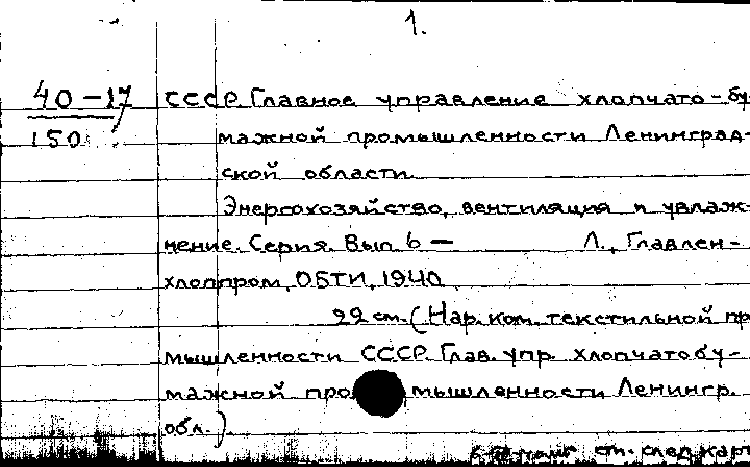 1.
40-17 СССР. Главное управление хлопчато-бу
150 мажной промышленности Ленинград-
ской области.
Энергохозяйство, вентиляция и увлаж-
нение. Серия. Вып. 6 — Л., Главлен-
хлоппром, ОБТИ, 1940.
22 см. (Нар. ком. текстильной пр
мышленности СССР. Глав. упр. хлопчатобу-
мажной промышленности Ленингр.
обл.).
см. след. карт